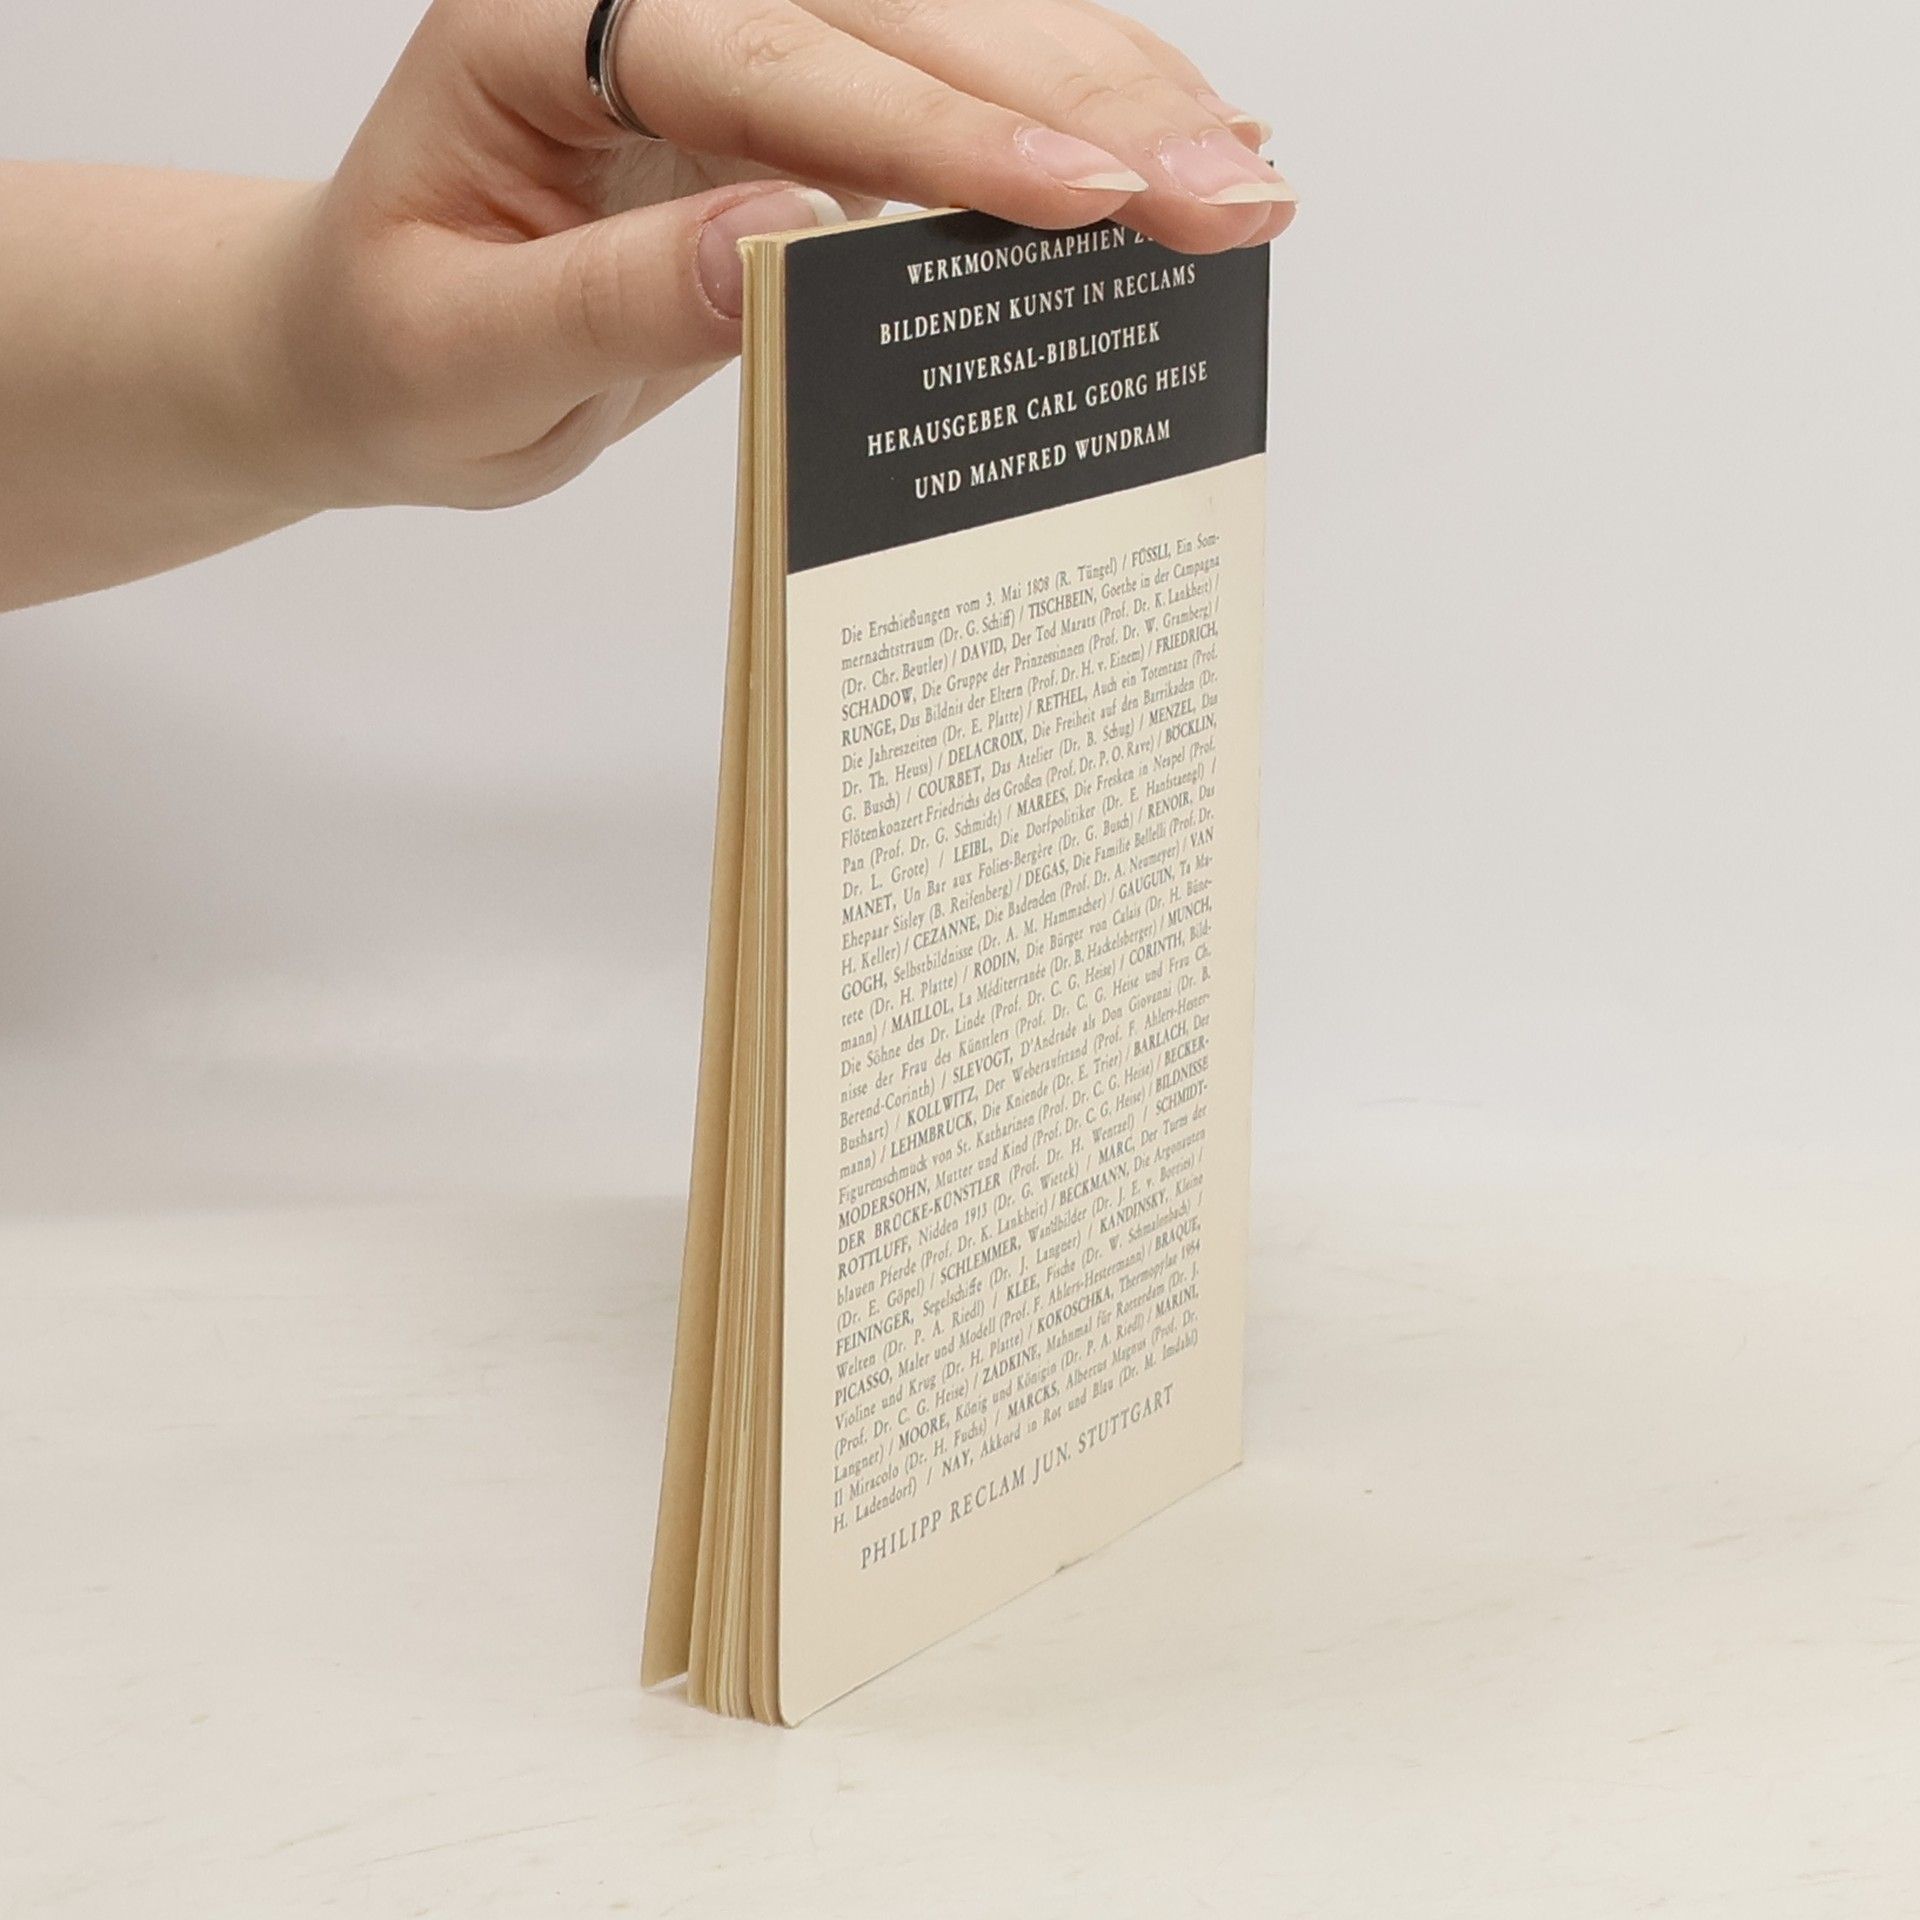 WERKMONOGRAPHIEN
BILDENDEN KUNST IN RECLAMS
UNIVERSAL-BIBLIOTHEK
HERAUSGEBER CARL GEORG HEISE
UND MANFRED WUNDRAM
Die Erschießungen vom 3. Mai 1808 (R. Tüngel) / FÜSSLI, Ein Som-
mernachtstraum (Dr. G. Schiff) / TISCHBEIN, Goethe in der Campagna
(Dr. Chr. Beutler) / DAVID, Der Tod Marats (Prof. Dr. K. Lankheit) /
SCHADOW, Die Gruppe der Prinzessinnen (Prof. Dr. W. Gramberg) /
RUNGE, Das Bildnis der Eltern (Prof. Dr. H. v. Einem) / FRIEDRICH,
Die Jahreszeiten (Dr. E. Platte) / RETHEL, Auch ein Totentanz (Prof.
Dr. Th. Heuss) / DELACROIX, Die Freiheit auf den Barrikaden (Dr.
G. Busch) / COURBET, Das Atelier (Dr. B. Schug) / MENZEL, Das
Flötenkonzert Friedrichs des Großen (Prof. Dr. P. O. Rave) / BÖCKLIN,
Pan (Prof. Dr. G. Schmidt) / MAREES, Die Fresken in Neapel (Prof.
Dr. L. Grote) / LEIBL, Die Dorfpolitiker (Dr. E. Hanfstaengl) /
MANET, Un Bar aux Folies-Bergère (Dr. G. Busch) / RENOIR, Das
Ehepaar Sisley (B. Reifenberg) / DEGAS, Die Familie Bellelli (Prof. Dr.
H. Keller) / CEZANNE, Die Badenden (Prof. Dr. A. Neumeyer) / VAN
GOGH, Selbstbildnisse (Dr. A. M. Hammacher) / GAUGUIN, Ta Ma-
tete (Dr. H. Platte) / RODIN, Die Bürger von Calais (Dr. H. Büne-
mann) / MAILLOL, La Méditerranée (Dr. B. Hackelsberger) / MUNCH,
Die Söhne des Dr. Linde (Prof. Dr. C. G. Heise) / CORINTH, Bild-
nisse der Frau des Künstlers (Prof. Dr. C. G. Heise und Frau Ch.
Berend-Corinth) / SLEVOGT, D'Andrade als Don Giovanni (Dr. B.
Bushart) / KOLLWITZ, Der Weberaufstand (Prof. F. Ahlers-Hester-
mann) / LEHMBRUCK, Die Kniende (Dr. E. Trier) / BARLACH, Der
Figurenschmuck von St. Katharinen (Prof. Dr. C. G. Heise) / BECKER-
MODERSOHN, Mutter und Kind (Prof. Dr. C. G. Heise) / BILDNISSE
DER BRÜCKE-KÜNSTLER (Prof. Dr. H. Wentzel) / SCHMIDT-
ROTTLUFF, Nidden 1913 (Dr. G. Wietek) / MARC, Der Turm der
blauen Pferde (Prof. Dr. K. Lankheit) / BECKMANN, Die Argonauten
(Dr. E. Göpel) / SCHLEMMER, Wandbilder (Dr. J. E. v. Borries) /
FEININGER, Segelschiffe (Dr. J. Langner) / KANDINSKY, Kleine
Welten (Dr. P. A. Riedl) / KLEE, Fische (Dr. W. Schmalenbach) /
PICASSO, Maler und Modell (Prof. F. Ahlers-Hestermann) / BRAQUE,
Violine und Krug (Dr. H. Platte) / KOKOSCHKA, Thermopylae 1954
(Prof. Dr. C. G. Heise) / ZADKINE, Mahnmal für Rotterdam (Dr. J.
Langner) / MOORE, König und Königin (Dr. P. A. Riedl) / MARINI,
Il Miracolo (Dr. H. Fuchs) / MARCKS, Albertus Magnus (Prof. Dr.
H. Ladendorf) / NAY, Akkord in Rot und Blau (Dr. M. Imdahl)
PHILIPP RECLAM JUN. STUTTGART